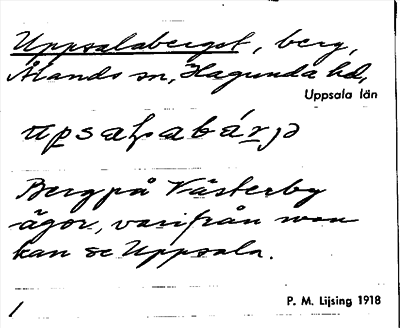 Uppsalaberget, berg,
Ålands sn, Hagunda hd,
Uppsala län
Berg på Västerby
ägor, varifrån man
kan se Uppsala.
1
P. M. Lijsing 1918